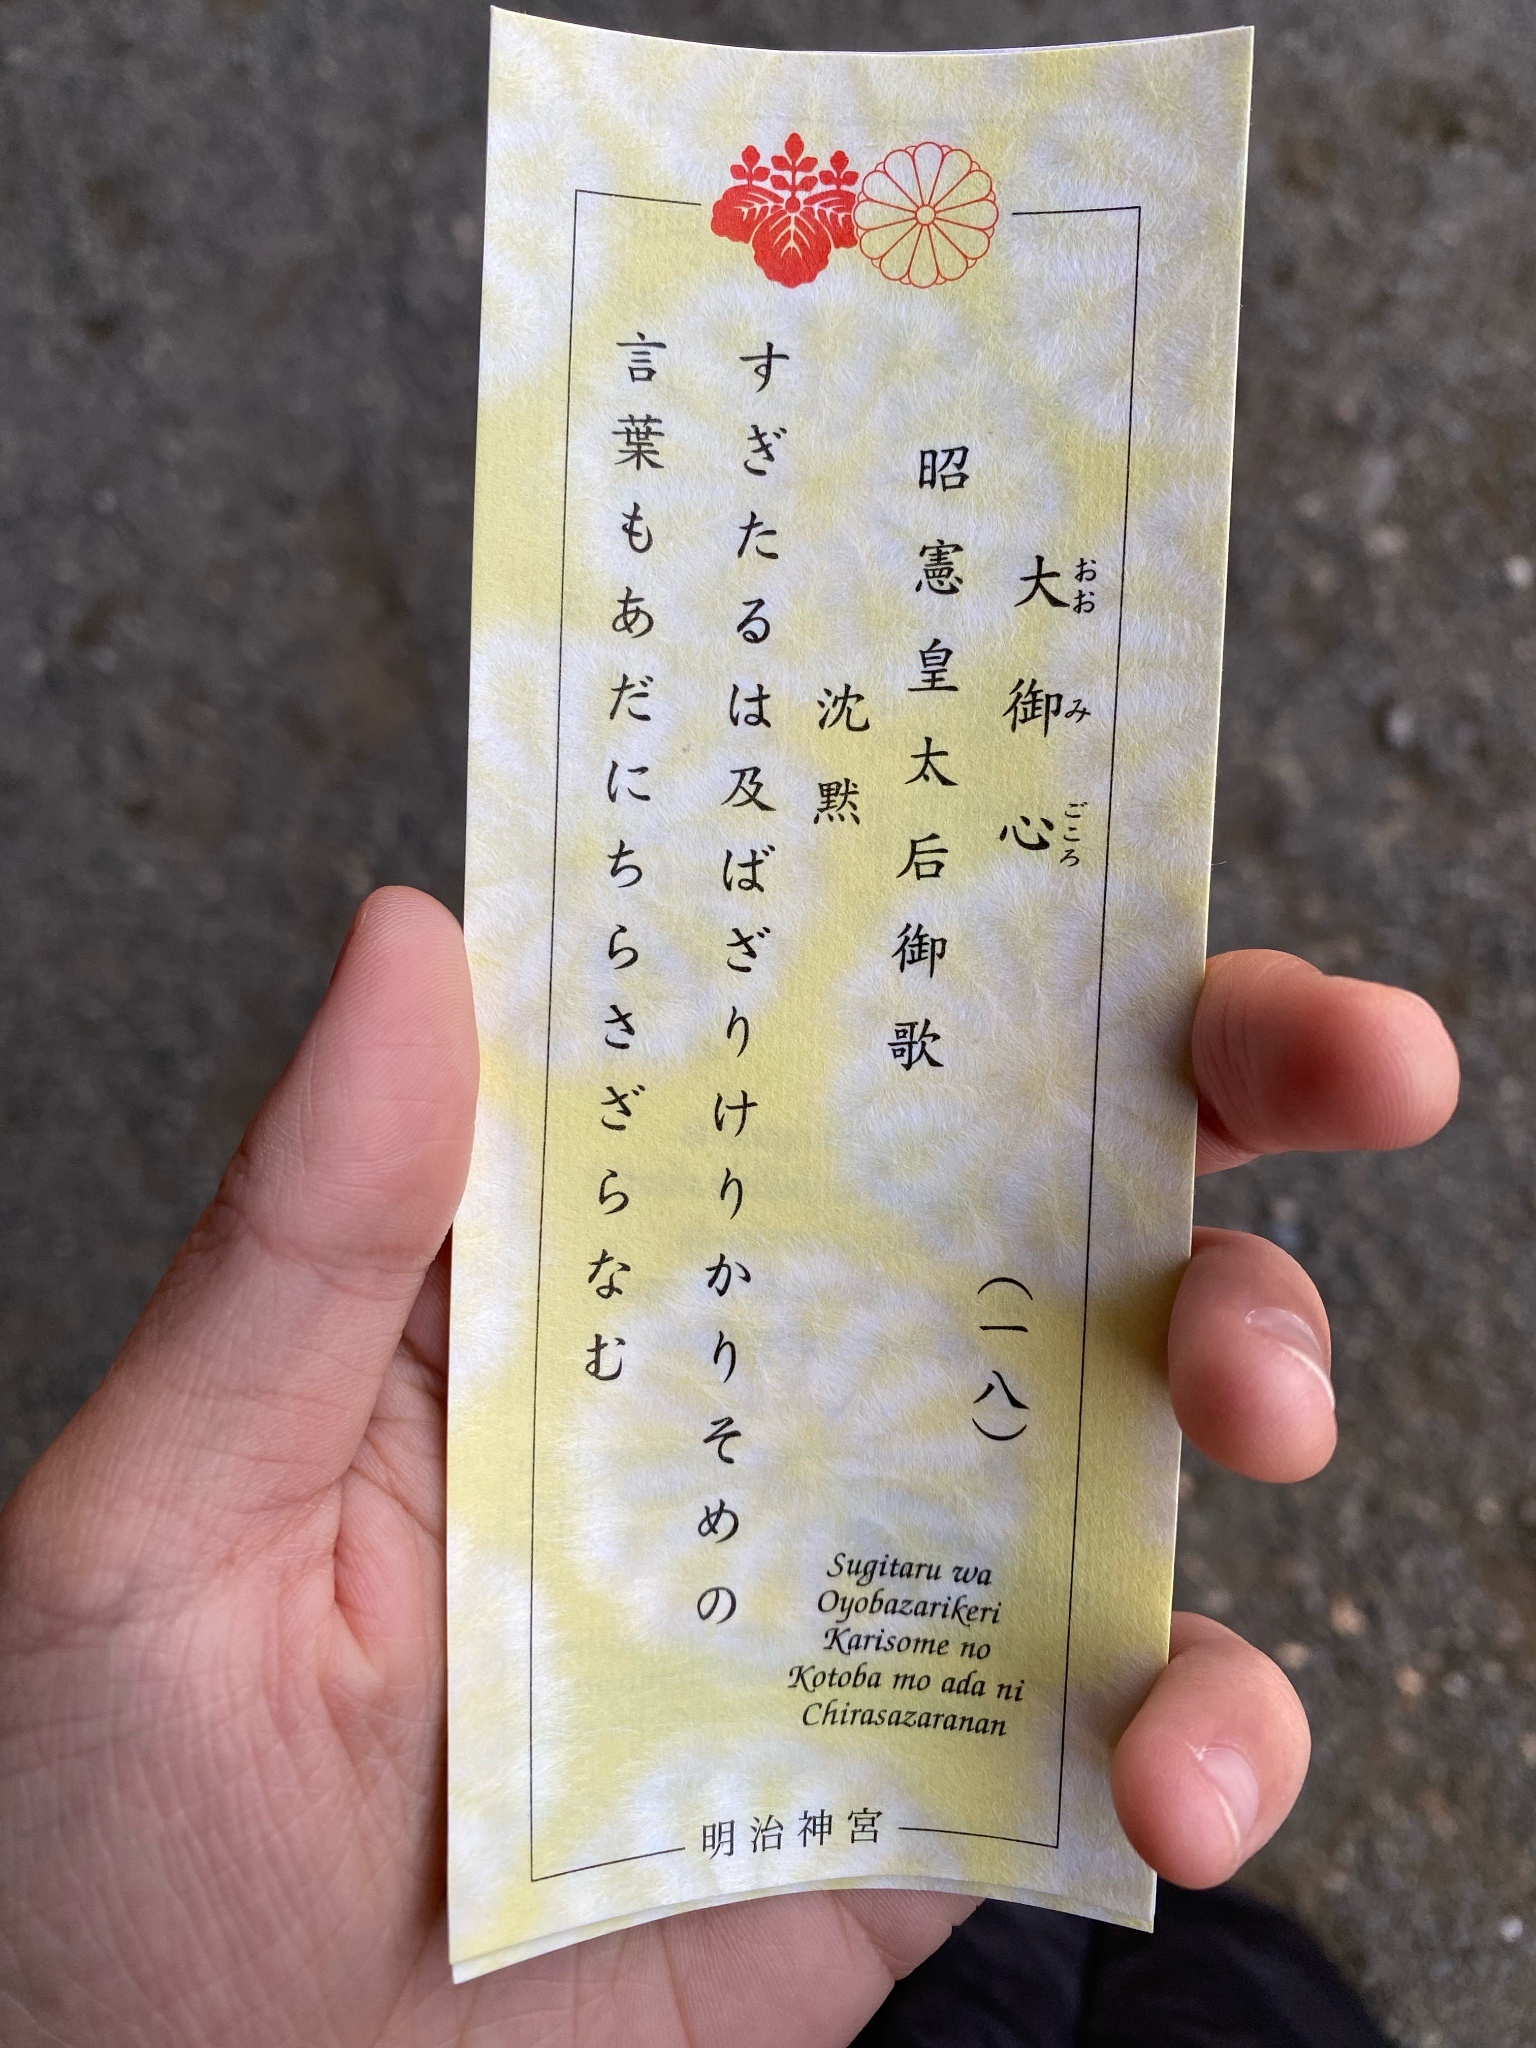 大御心
おおみごころ
（一八）
昭憲皇太后御歌
沈黙
すぎたるは及ばざりけりかりそめの
言葉もあだにちらさざらなむ
Sugitaru wa
Oyobazarikeri
Karisome no
Kotoba mo ada ni
Chirasazaranan
明治神宮